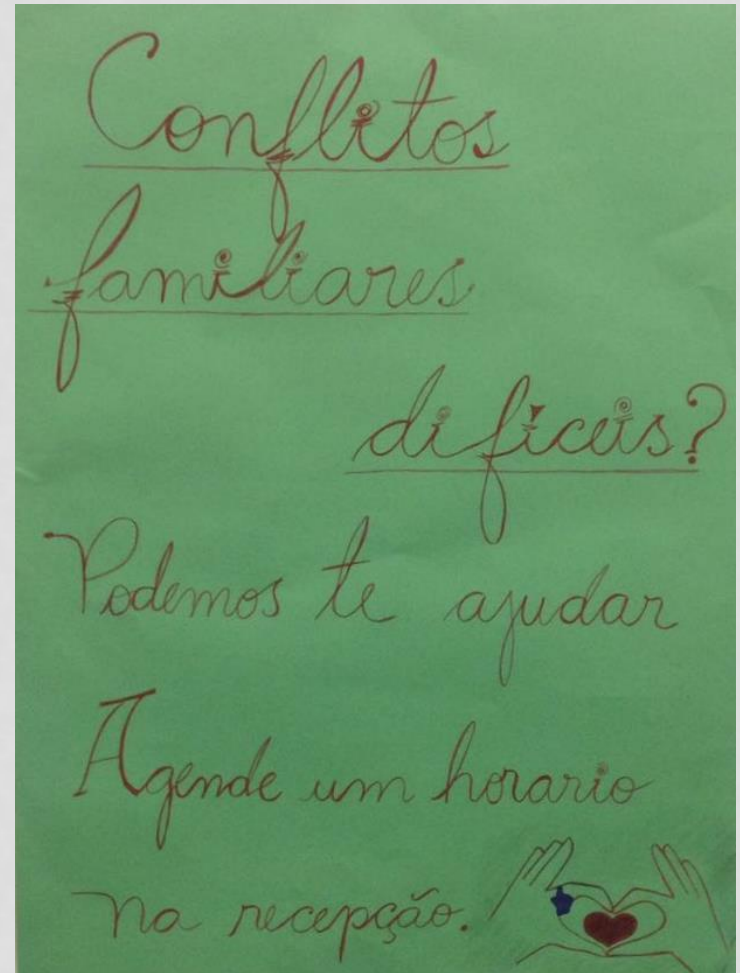 Conflitos
familiares
dificeis?
Podemos te ajudar
Agende um horario
na recepção.